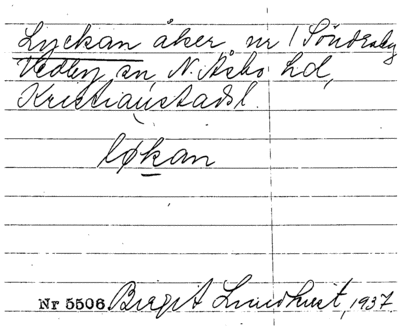 Lyckan åker nr 1 Sönderby
Vedby sn N. Åsbo hd,
Kristianstadsl.
løkan
Nr 5506 Birgit Lundhust, 1937